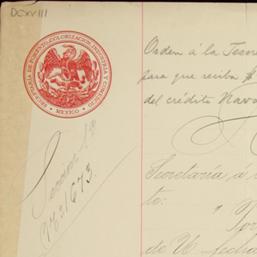 DCXVIII
SECRETARIA DE FOMENTO, COLONIZACION, INDUSTRIA Y COMERCIO
MEXICO
Orden á la Tesore
para que reciba $
del crédito Nava
Secretaría á
to:
"Por
de U. fecha
Seccion 1ª